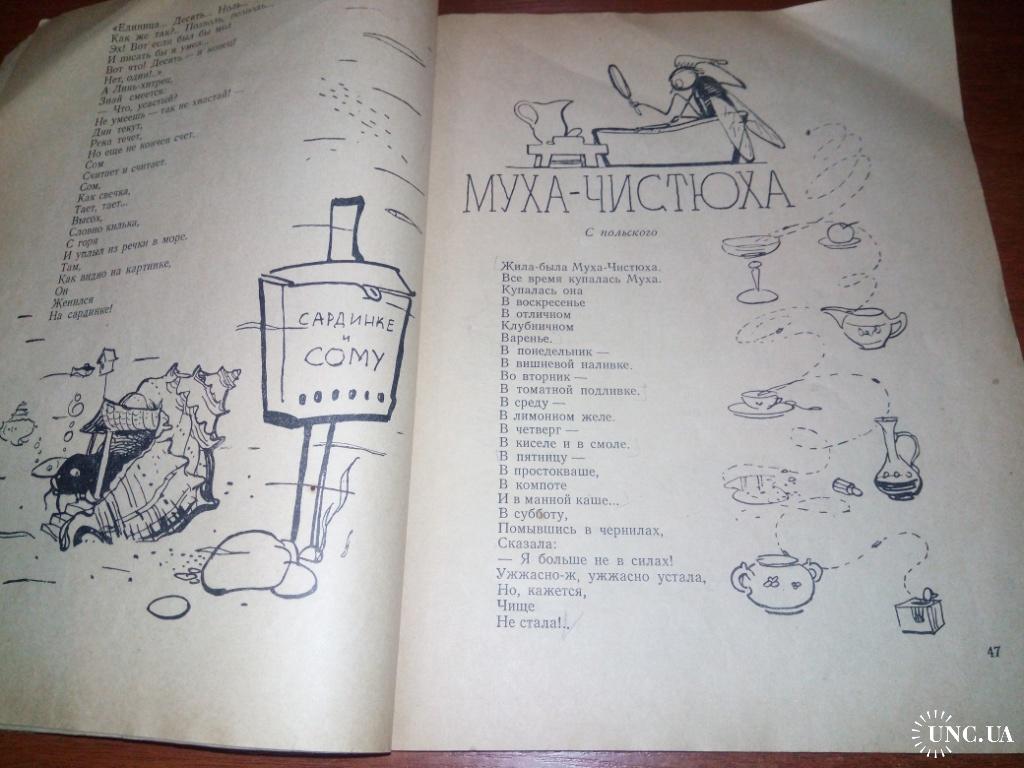 «Единица... Десять... Ноль...
Как же так?.. Позволь, позволь...
Эх! Вот если был бы мог
И писать бы я умел...
Вот что! Десять — и конец?
Нет, один!..»
А Линь-хитрец,
Знай смеется:
— Что, усастый?
Не умеешь — так не хвастай! —
Дни текут,
Река течет,
Но еще не кончен счет.
Сом
Считает и считает.
Сом,
Как свечка,
Тает, тает...
Высох,
Словно килька,
С горя
И уплыл из речки в море.
Там,
Как видно на картинке,
Он
Женился
На сардинке!
САРДИНКЕ
И
СОМУ
МУХА-ЧИСТЮХА
С польского
Жила-была Муха-Чистюха.
Все время купалась Муха.
Купалась она
В воскресенье
В отличном
Клубничном
Варенье.
В понедельник —
В вишневой наливке.
Во вторник —
В томатной подливке.
В среду —
В лимонном желе.
В четверг —
В киселе и в смоле.
В пятницу —
В простокваше,
В компоте
И в манной каше...
В субботу,
Помывшись в чернилах,
Сказала:
— Я больше не в силах!
Ужжасно-ж, ужжасно устала,
Но, кажется,
Чище
Не стала!..
47
UNC.UA